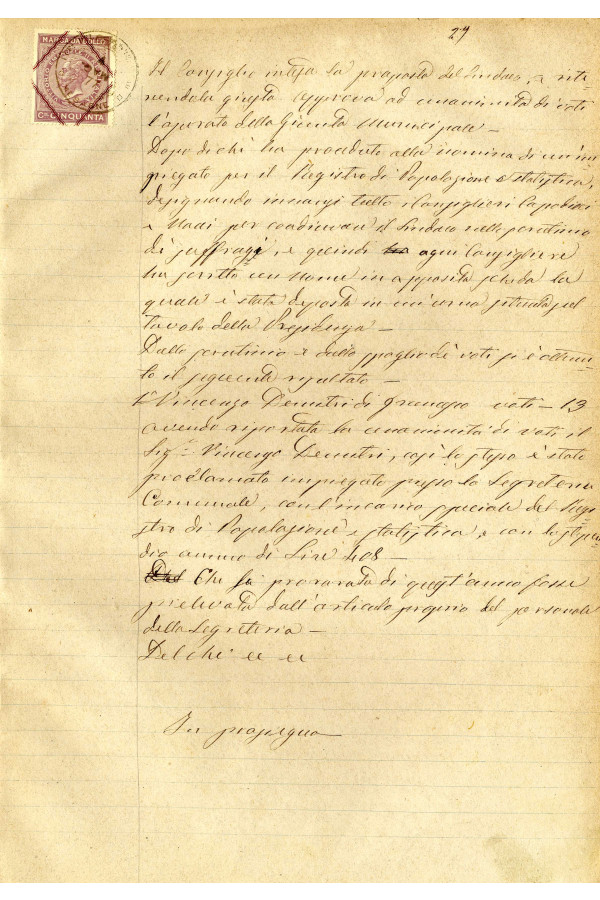 29
MARCA DA BOLLO
Cmi CINQUANTA
Il Consiglio intesa la proposta del Sindaco, e rite-
nendola giusta approva ad unanimità di voti
l'operato della Giunta Municipale—
Dopo di chè ha proceduto alla nomina di un'im-
piegato per il Registro di Popolazione e statistica,
designando innanzi tutto i Consiglieri Capobici
e Madi per coadiuvare il Sindaco nello scrutinio
di suffragi, e quindi ogni Consigliere
ha scritto un nome in apposita scheda la
quale è stata deposta in un'urna situata sul
tavolo della Presidenza—
Dallo scrutinio e dallo spoglio dè voti si è ottenu-
to il seguente risultato—
1° Vincenzo Demitri di voti—13
avendo riportata la unanimità di voti il
Sigr. Vincenzo Demitri, così lo stesso è stato
proclamato impiegato presso la Segreteria
Comunale, con l'incarico speciale del Regi-
stro di Popolazione e statistica, e con lo stipen-
dio annuo di Lire 408—
Che la prorata di quest'anno fosse
prelevata dall'articolo proprio del personale
della Segreteria—
Del chè ec ec